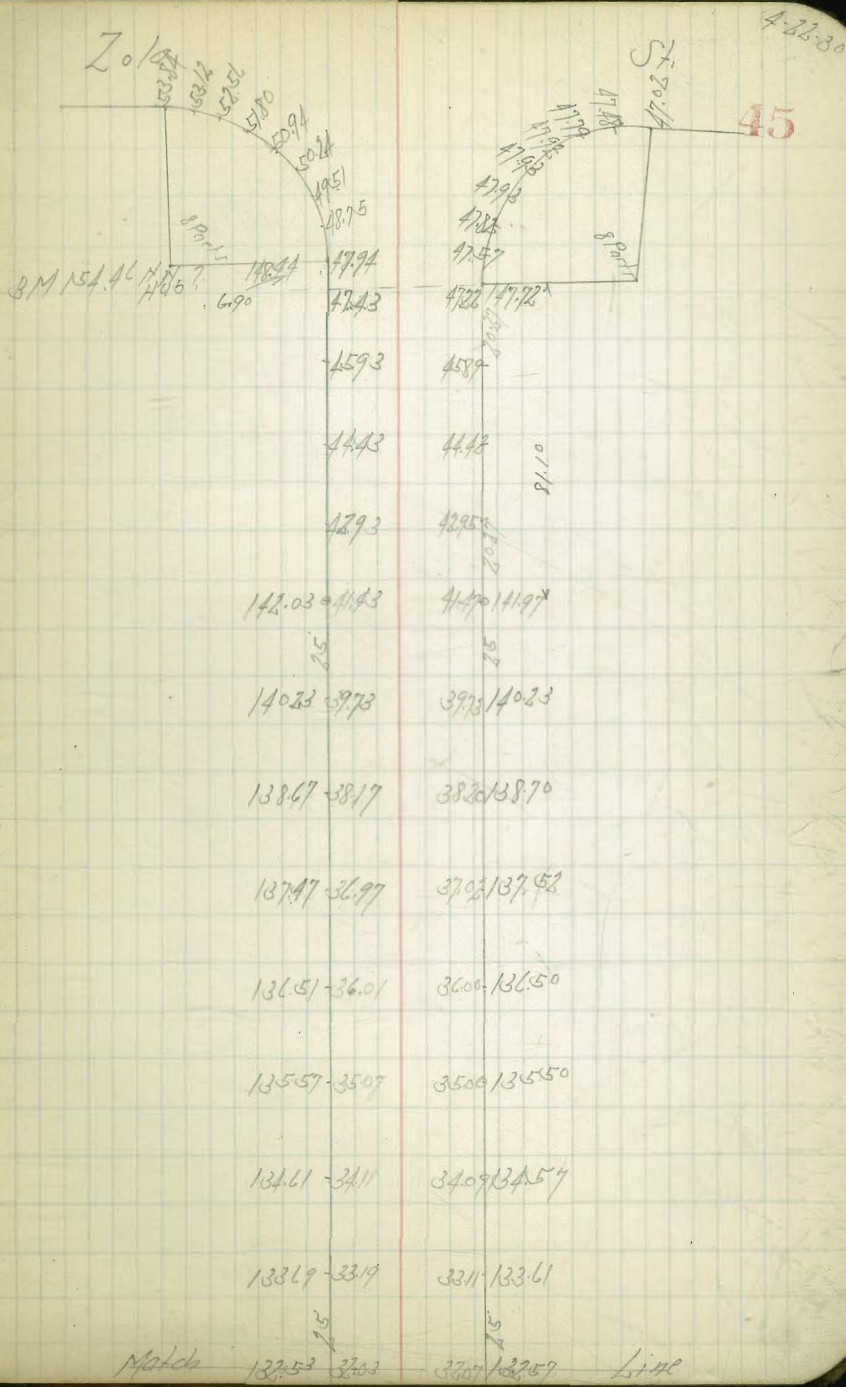 4-22-30
Zola St
45
53.84 53.12 52.56 51.80 50.94 50.24 49.51 48.75
47.02 47.48 47.79 47.92 47.93 47.93 47.82 47.57
8 Parts 8 Parts
BM 154.46 Hub 148.44 47.94
6.90 47.43 47.22 147.72
20.27
45.93 45.89
44.43 44.42
81.10
42.93 42.95
20.27
142.03 41.43 41.47 141.97
25 25
140.23 - 39.73 39.73 140.23
138.67 - 38.17 38.20 138.70
137.47 - 36.97 37.02 137.52
136.51 - 36.01 36.00 - 136.50
135.57 - 35.07 35.00 135.50
134.61 - 34.11 34.07 134.57
133.69 - 33.19 33.11 - 133.61
25 25
Match 132.53 32.03 32.07 132.57 Line